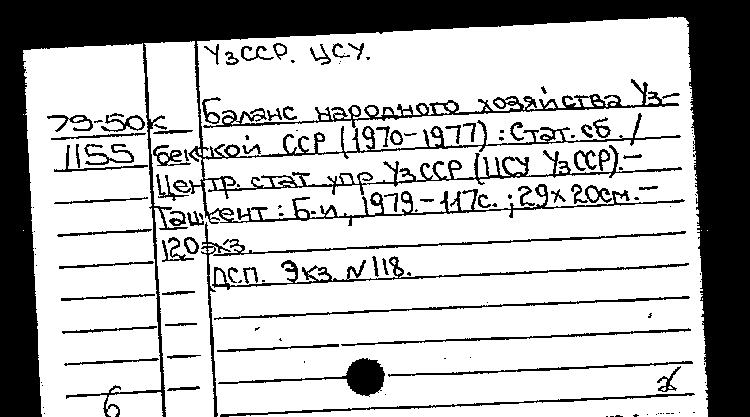 УзССР. ЦСУ.
79-50к Баланс народного хозяйства Уз-
1155 бекской ССР (1970-1977) : Стат. сб. /
Центр. стат. упр УзССР (ЦСУ УзССР). -
Ташкент : Б.и., 1979. - 117с. ; 29х20см. -
120экз.
ДСП. Экз. N118.
6